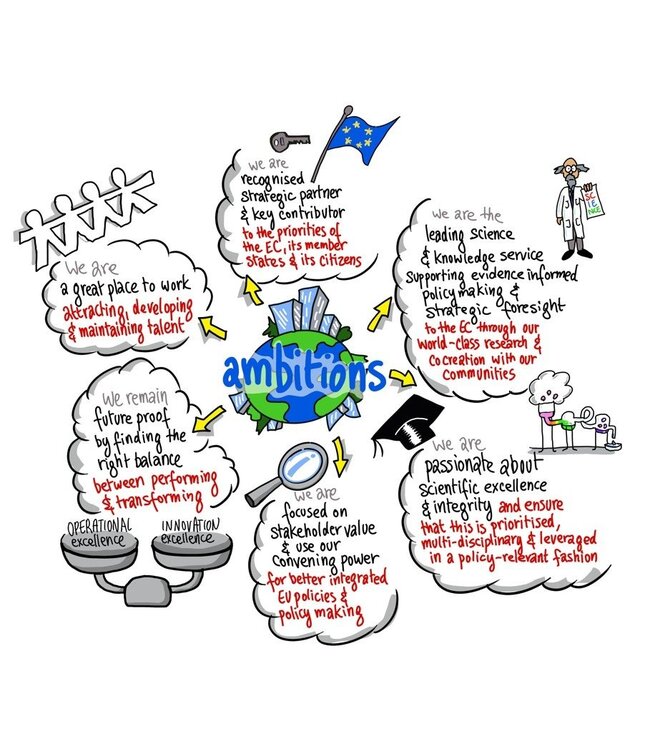 we are
recognised
strategic partner
& key contributor
to the priorities of
the EC, its member
states & its citizens
we are the
leading science
& knowledge service
supporting evidence informed
policymaking &
strategic foresight
to the EC through our
world-class research &
cocreation with our
communities
SC
IE
NCE
We are
a great place to work
attracting, developing
& maintaining talent
ambitions
We remain
future proof
by finding the
right balance
between performing
& transforming
OPERATIONAL
excellence
INNOVATION
excellence
we are
focused on
stakeholder value
& use our
convening power
for better integrated
EU policies &
policy making
we are
passionate about
scientific excellence
& integrity and ensure
that this is prioritised,
multi-disciplinary & leveraged
in a policy-relevant fashion